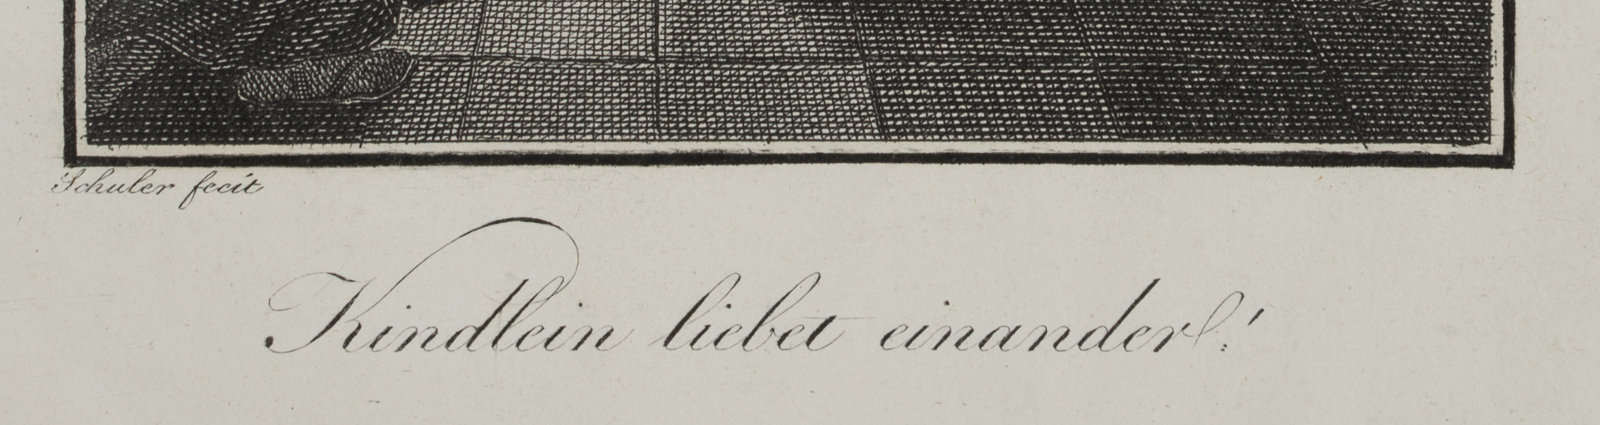 Schuler fecit
Kindlein liebet einander!